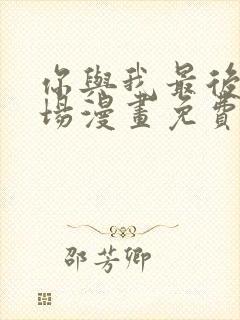 你與我最後
場漫畫免費
邵芳卿